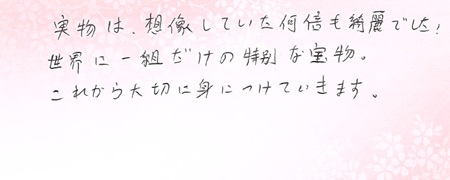 実物は、想像していた何倍も綺麗でした！
世界に一組だけの特別な宝物。
これから大切に身につけていきます。